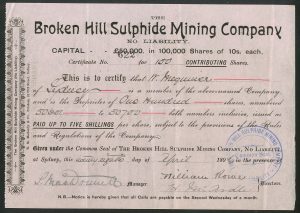 THE
Broken Hill Sulphide Mining Company,
NO LIABILITY.
CAPITAL - £50,000, in 100,000 Shares of 10s. each.
Certificate No. 622 for 100 CONTRIBUTING Shares.
This is to certify that
of Sydney is a member of the abovenamed Company
and is the Proprietor of One Hundred shares, numbered
to both numbers inclusive, issued as
PAID UP TO FIVE SHILLINGS per share, subject to the provisions of the Rules
and Regulations of the Company.
Given under the Common Seal of THE BROKEN HILL SULPHIDE MINING COMPANY, NO LIABILITY,
at Sydney, this day of April
Manager William
Directors
N.B.—Notice is hereby given that all calls are payable on the Second Wednesday of a month.